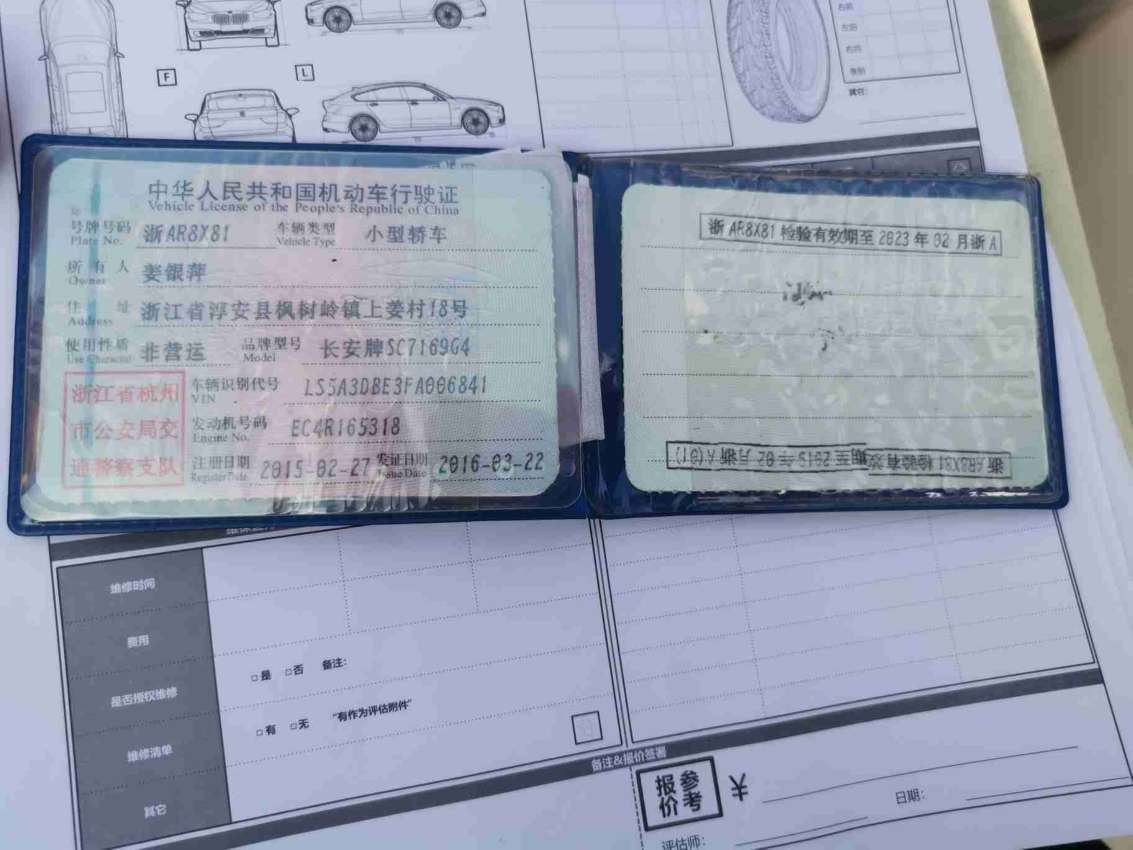 右前
左后
右后
备胎
其它:
F
L
中华人民共和国机动车行驶证
Vehicle License of the People's Republic of China
号牌号码 浙AR8X81 车辆类型 小型轿车
Plate No. Vehicle Type
所有人 姜银萍
Owner
住址 浙江省淳安县枫树岭镇上姜村18号
Address
使用性质 非营运 品牌型号 长安牌SC7169G4
Use Character Model
浙江省杭州
市公安局交
通警察支队
车辆识别代号 LS5A3DBE3FA006841
VIN
发动机号码 EC4R165318
Engine No.
注册日期 2015-02-27 发证日期 2016-03-22
Register Date Issue Date
浙AR8X81 检验有效期至 2023年 02月浙A
浙AR8X81 检验有效期至 2019年 02月浙A(01)
维修时间
费用
是否授权维修 □是 □否 备注:
维修清单 □有 □无 "有作为评估附件"
其它
备注&报价签署
参考
报价
¥
日期:
评估师: